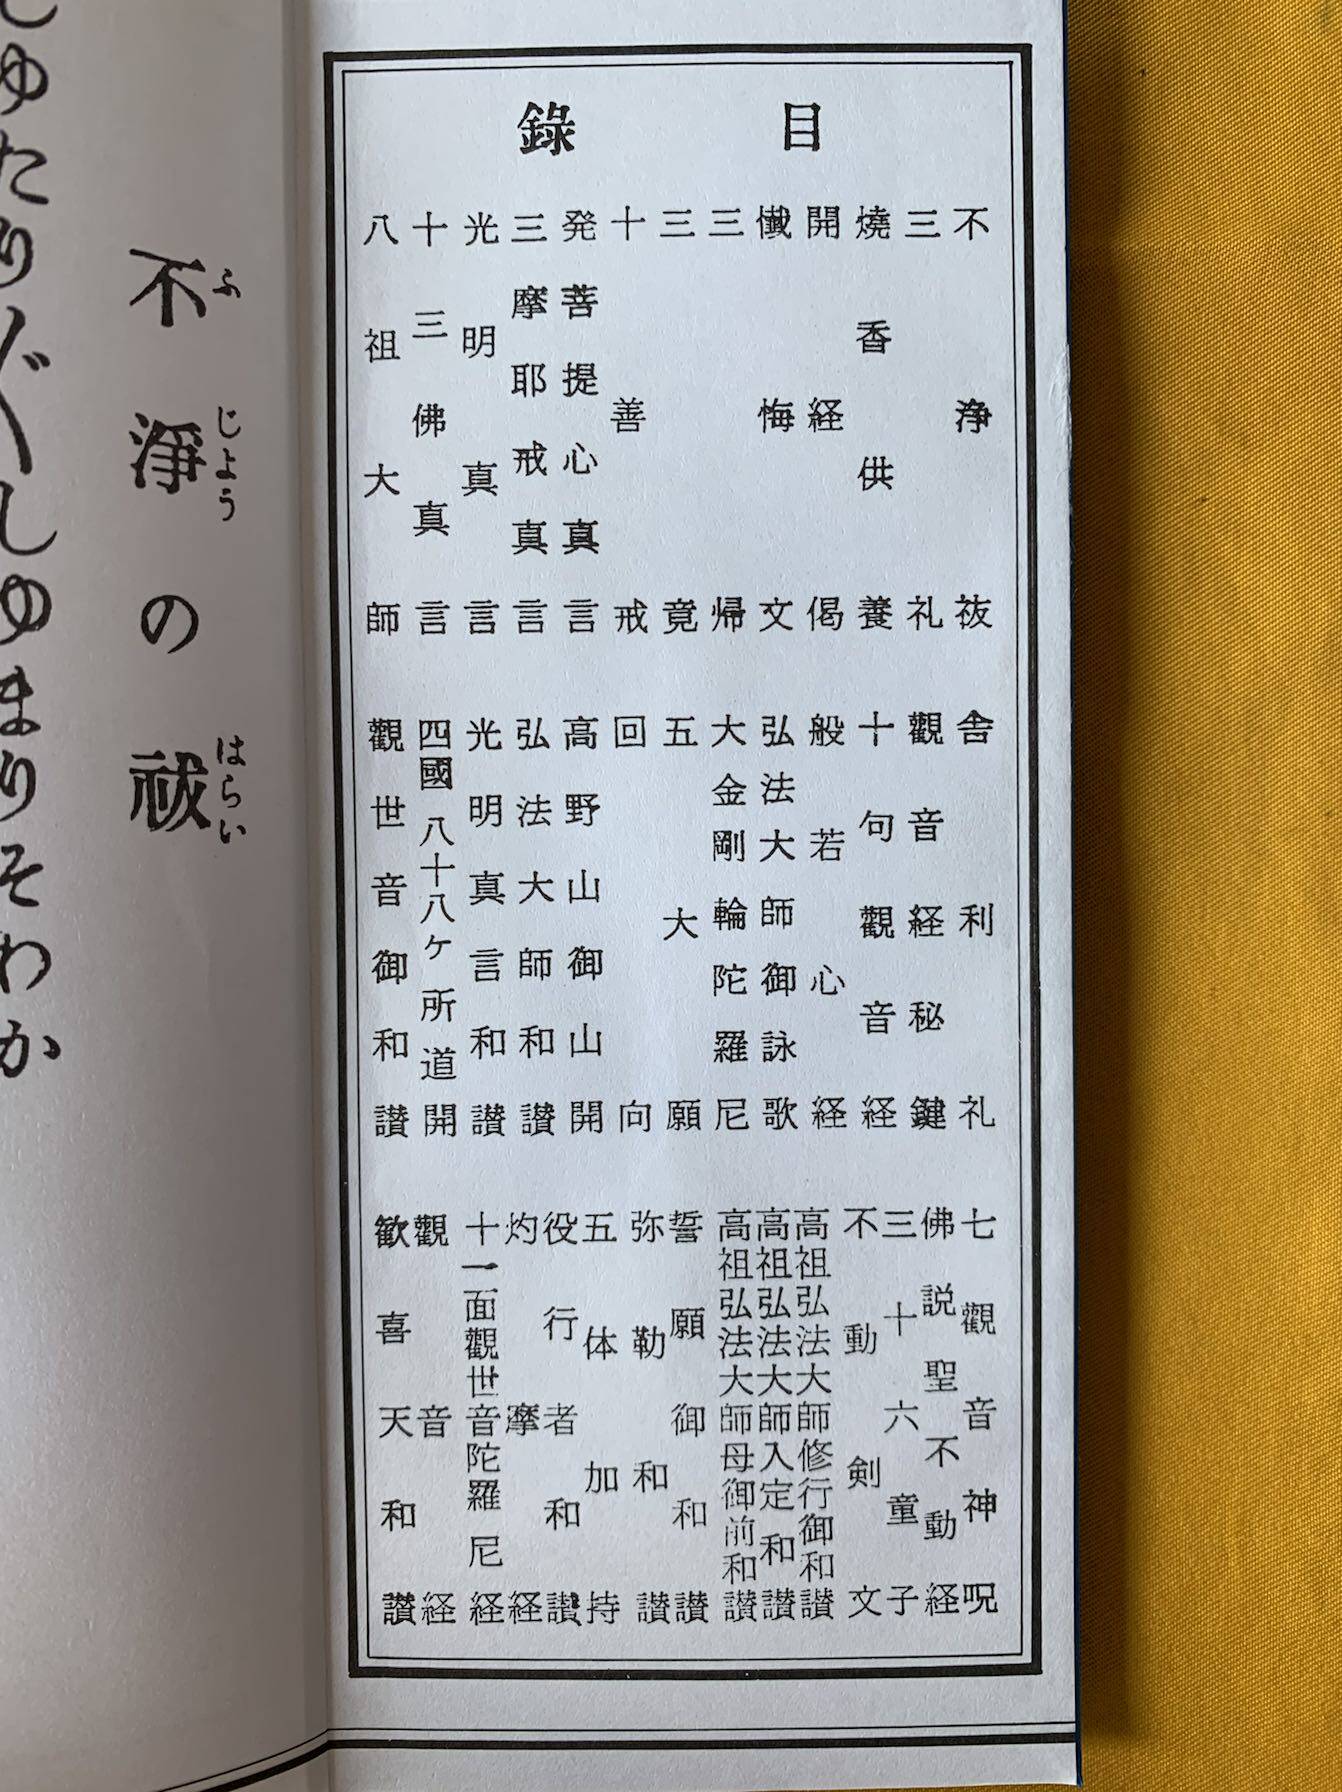 目錄
不浄祓
三礼
燒香供養
開経偈
懺悔文
三帰
三竟
十善戒
発菩提心真言
三摩耶戒真言
光明真言
十三佛真言
八祖大師
舎利礼
觀音経秘鍵
十句觀音経
般若心経
弘法大師御詠歌
大金剛輪陀羅尼
五大願
回向
高野山御山開
弘法大師和讃
光明真言和讃
四國八十八ケ所道開
觀世音御和讃
七觀音神呪
佛説聖不動経
三十六童子
不動剣文
高祖弘法大師修行御和讃
高祖弘法大師入定和讃
高祖弘法大師母御前和讃
誓願御和讃
弥勒和讃
五体加持
役行者和讃
灼摩経
十一面觀世音陀羅尼経
觀音経
歓喜天和讃
ふじようはらい
不淨の祓
ゆたり〲しゆまりそわか